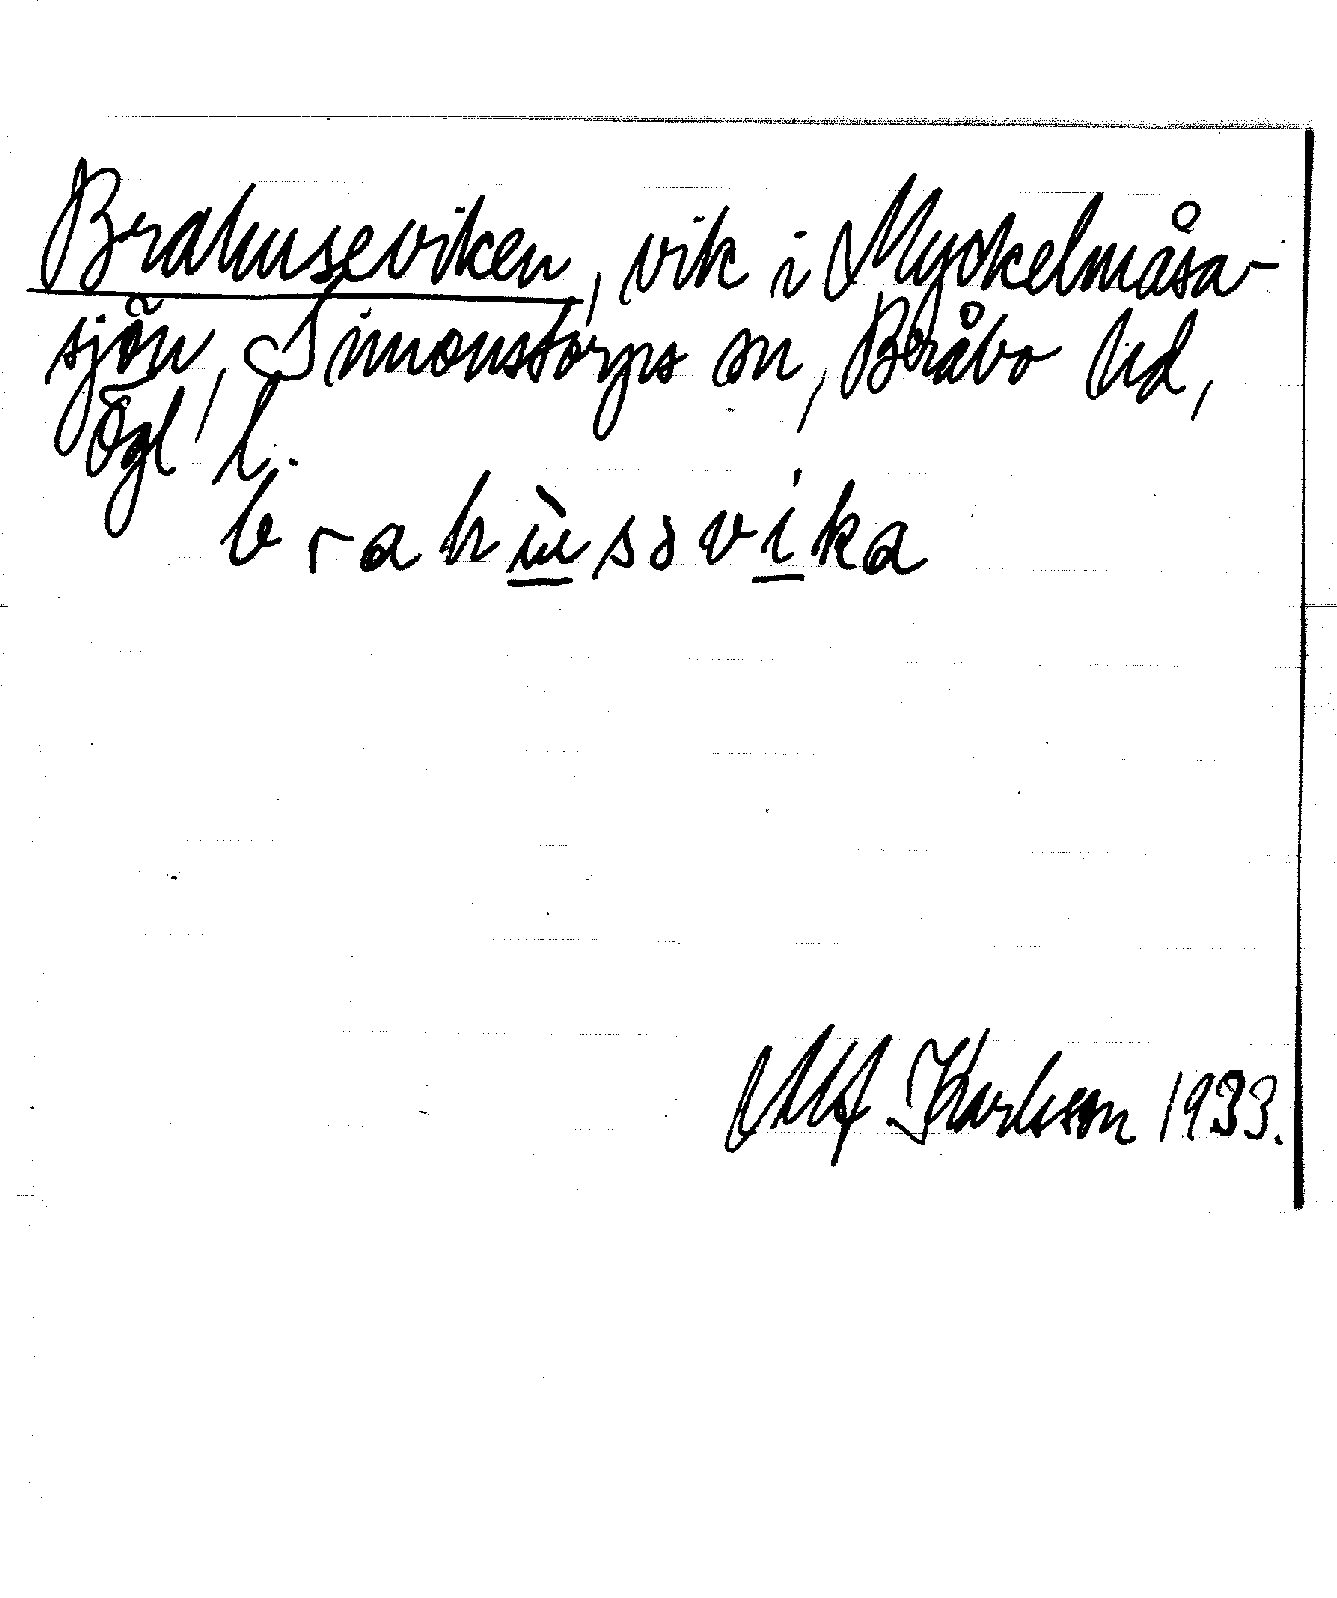 Brahuseviken, vik i Myckelmåsa-
sjön, Simonstorps sn, Bråbo hd,
Ögl l.
brahùsəvika
Alf Karlsson 1933.